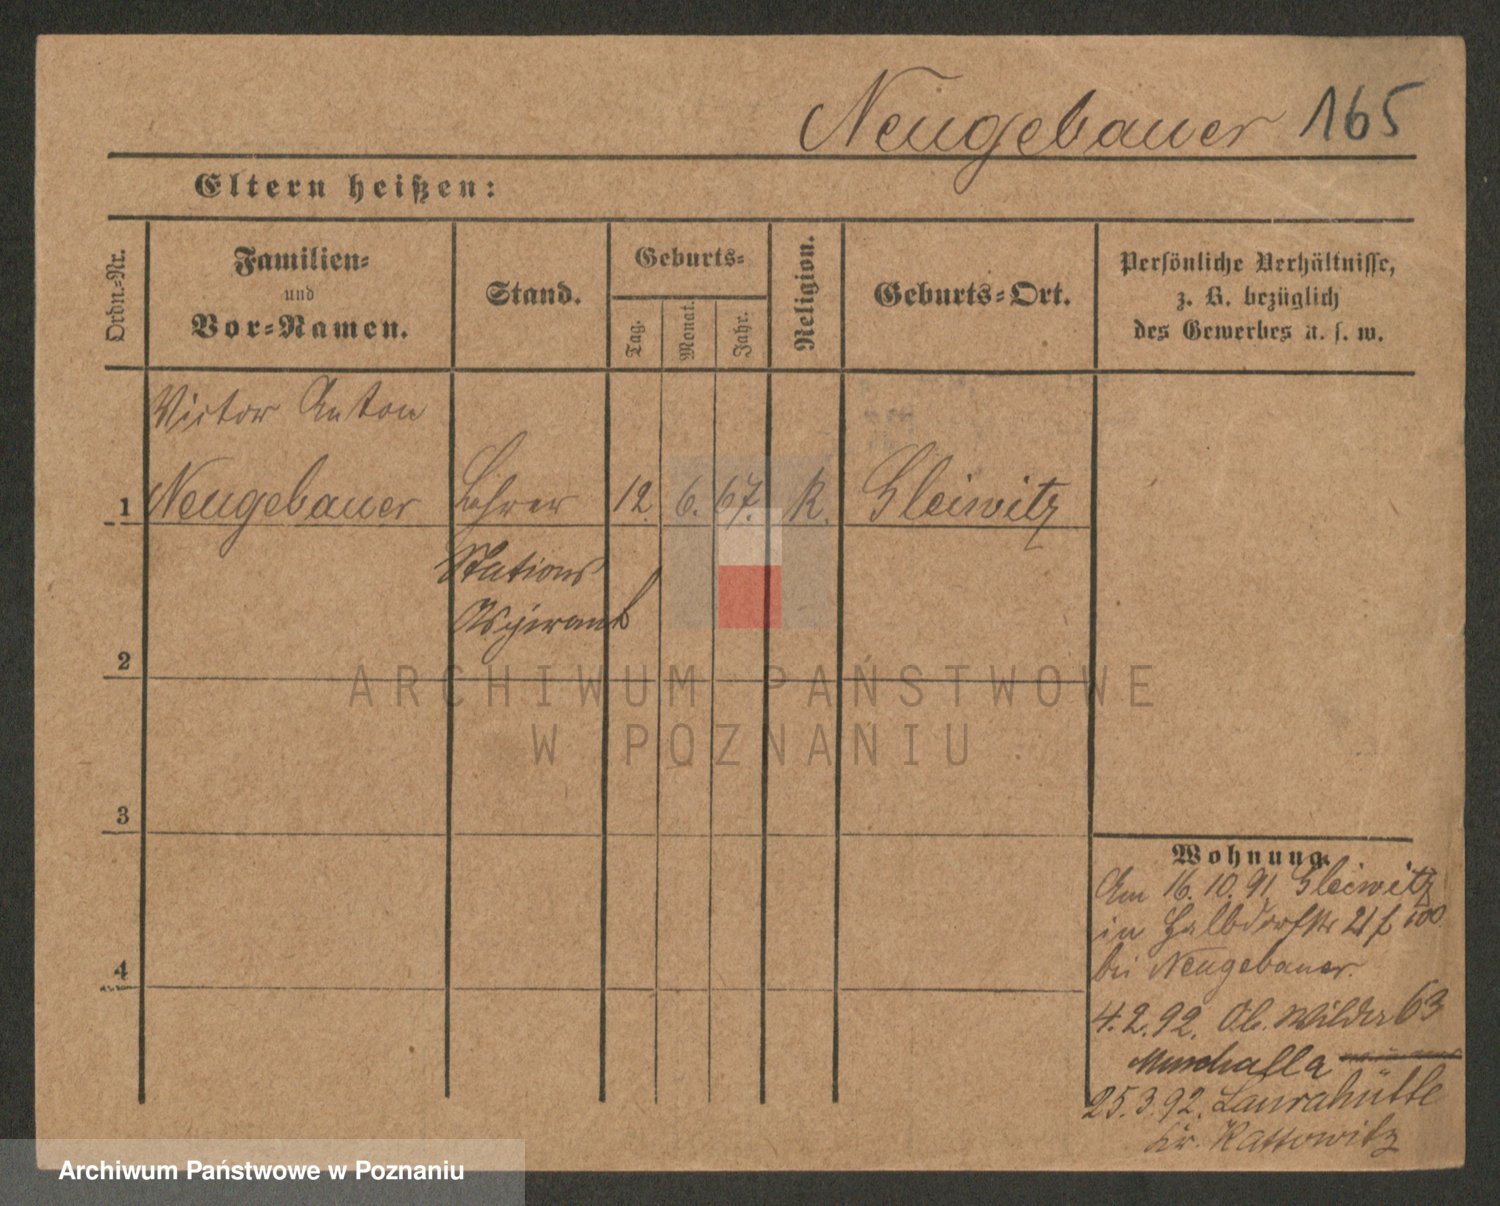 Neugebauer 165
Eltern heißen:
Ordn.-Nr.
Familien-
und
Vor-Namen.
Stand.
Geburts-
Tag.
Monat.
Jahr.
Religion.
Geburts-Ort.
Persönliche Verhältnisse,
z. B. bezüglich
des Gewerbes u. s. w.
Victor Anton
1 Neugebauer Lehrer 12. 6. 67. K. Gleiwitz
Stations
Aspirant
2
3
4
Wohnung.
Am 16. 10. 91. Gleiwitz
in Halbdorfstr 21
bei Neugebauer.
4. 2. 92. Ob. Wilda 63
Muschalla
25. 3. 92. Laurahütte
Kr. Kattowitz
ARCHIWUM PAŃSTWOWE
W POZNANIU
Archiwum Państwowe w Poznaniu